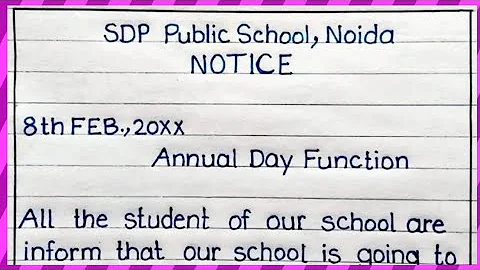 SDP Public School, Noida
NOTICE
8th FEB., 20xx
Annual Day Function
All the student of our school are
inform that our school is going to